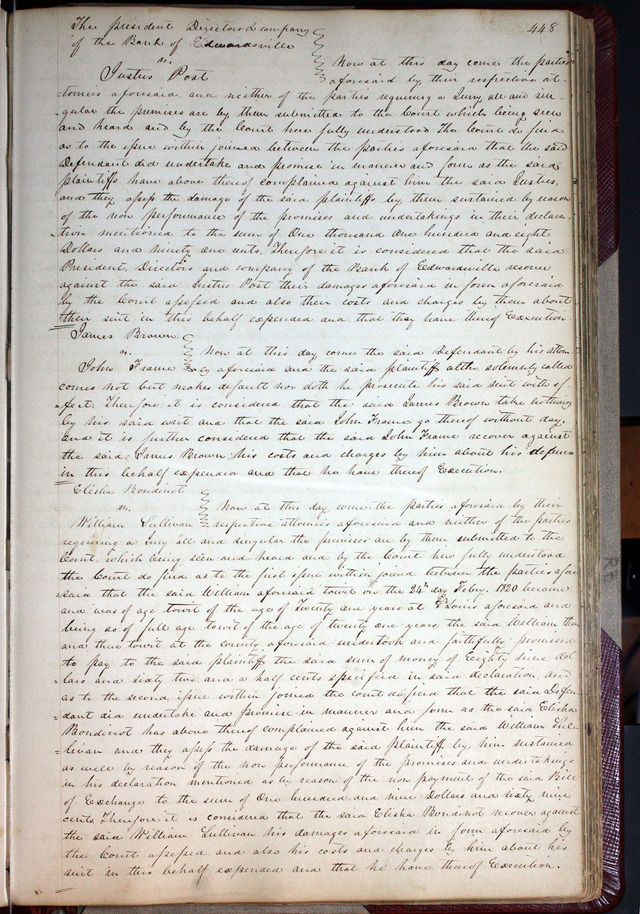 448
The president Directors & company
of the Bank of Edwardsville
vs. Now at this day come the parties
Justus Post aforesaid by their respective at-
-tornies aforesaid and neither of the parties requiring a Jury all and sin-
-gular the premises are by them submitted to the Court which being seen
and heard and by the Court here fully understood the Court do find
as to the issue within joined between the parties aforesaid that the said
Defendant did undertake and promise in manner and form as the said
plaintiffs have above thereof complained against him the said Justus,
and they assess the damage of the said plaintiffs by them sustained by reason
of the non performance of the promises and undertakings in their declara-
tion mentioned to the sum of One thousand One hundred and eight
Dollars and ninety one cents. Therefore it is considered that the said
President, Directors and company of the Bank of Edwardsville recover
against the said Justus Post their damages aforesaid in form aforesaid
by the Court assessed and also their costs and charges by them about
their suit in this behalf expended and that they have thereof Execution.
James Brown
vs. Now at this day comes the said Defendant by his attor-
John Frame ney aforesaid and the said plaintiff altho solemnly called
comes not but makes default nor doth he prosecute his said suit with ef-
-fect. Therefore it is considered that the said James Brown take nothing
by his said writ and that the said John Frame go thereof without day,
and it is further considered that the said John Frame recover against
the said James Brown his costs and charges by him about his defence
in this behalf expended and that he have thereof Execution.
Elisha Bondinot
vs. Now at this day come the parties aforesaid by their
William Sullivan respective attornies aforesaid and neither of the parties
requiring a Jury all and singular the premises are by them submitted to the
Court, which being seen and heard and by the Court here fully understood
the Court do find as to the first issue within joined between the parties afore-
-said that the said William aforesaid towit on the 24th day Febry. 1820 became
and was of age towit of the age of Twenty one years at St Louis aforesaid and
being so of full age towit of the age of twenty one years the said William then
and there towit at the county aforesaid undertook and faithfully promised
to pay to the said plaintiff the said sum of money of Eighty nine dol-
-lars and sixty two and a half cents specified in said declaration, and
as to the second issue within joined the court do find that the said Defen-
-dant did undertake and promise in manner and form as the said Elisha
Bondinot has above thereof complained against him the said William Sul-
-livan and they assess the damage of the said plaintiff by him sustained
as well by reason of the non performance of the promises and undertakings
in his declaration mentioned as by reason of the non payment of the said Bill
of Exchange to the sum of One hundred and nine Dollars and sixty nine
cents. Therefore it is considered that the said Elisha Bondinot recover against
the said William Sullivan his damages aforesaid in form aforesaid by
the Court assessed and also his costs and charges by him about his
suit in this behalf expended and that he have thereof Execution.